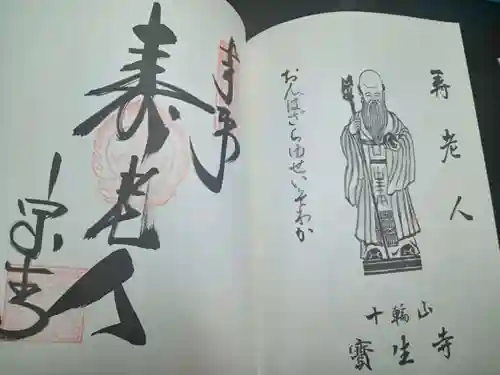 奉拝
寿老人
宝生寺
寿老人
おんばざらゆせいそわか
十輪山
寳生寺